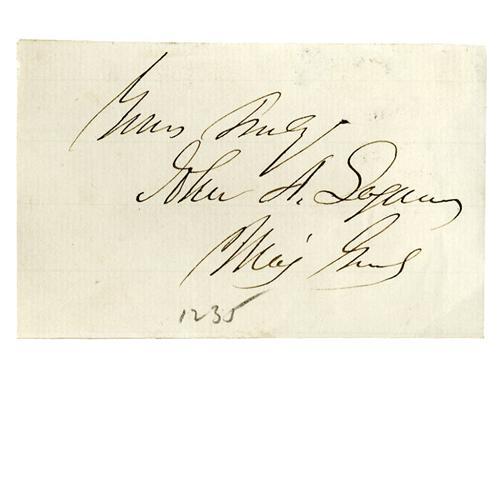 Yours Truly
John A. Logan
Maj Genl
1235